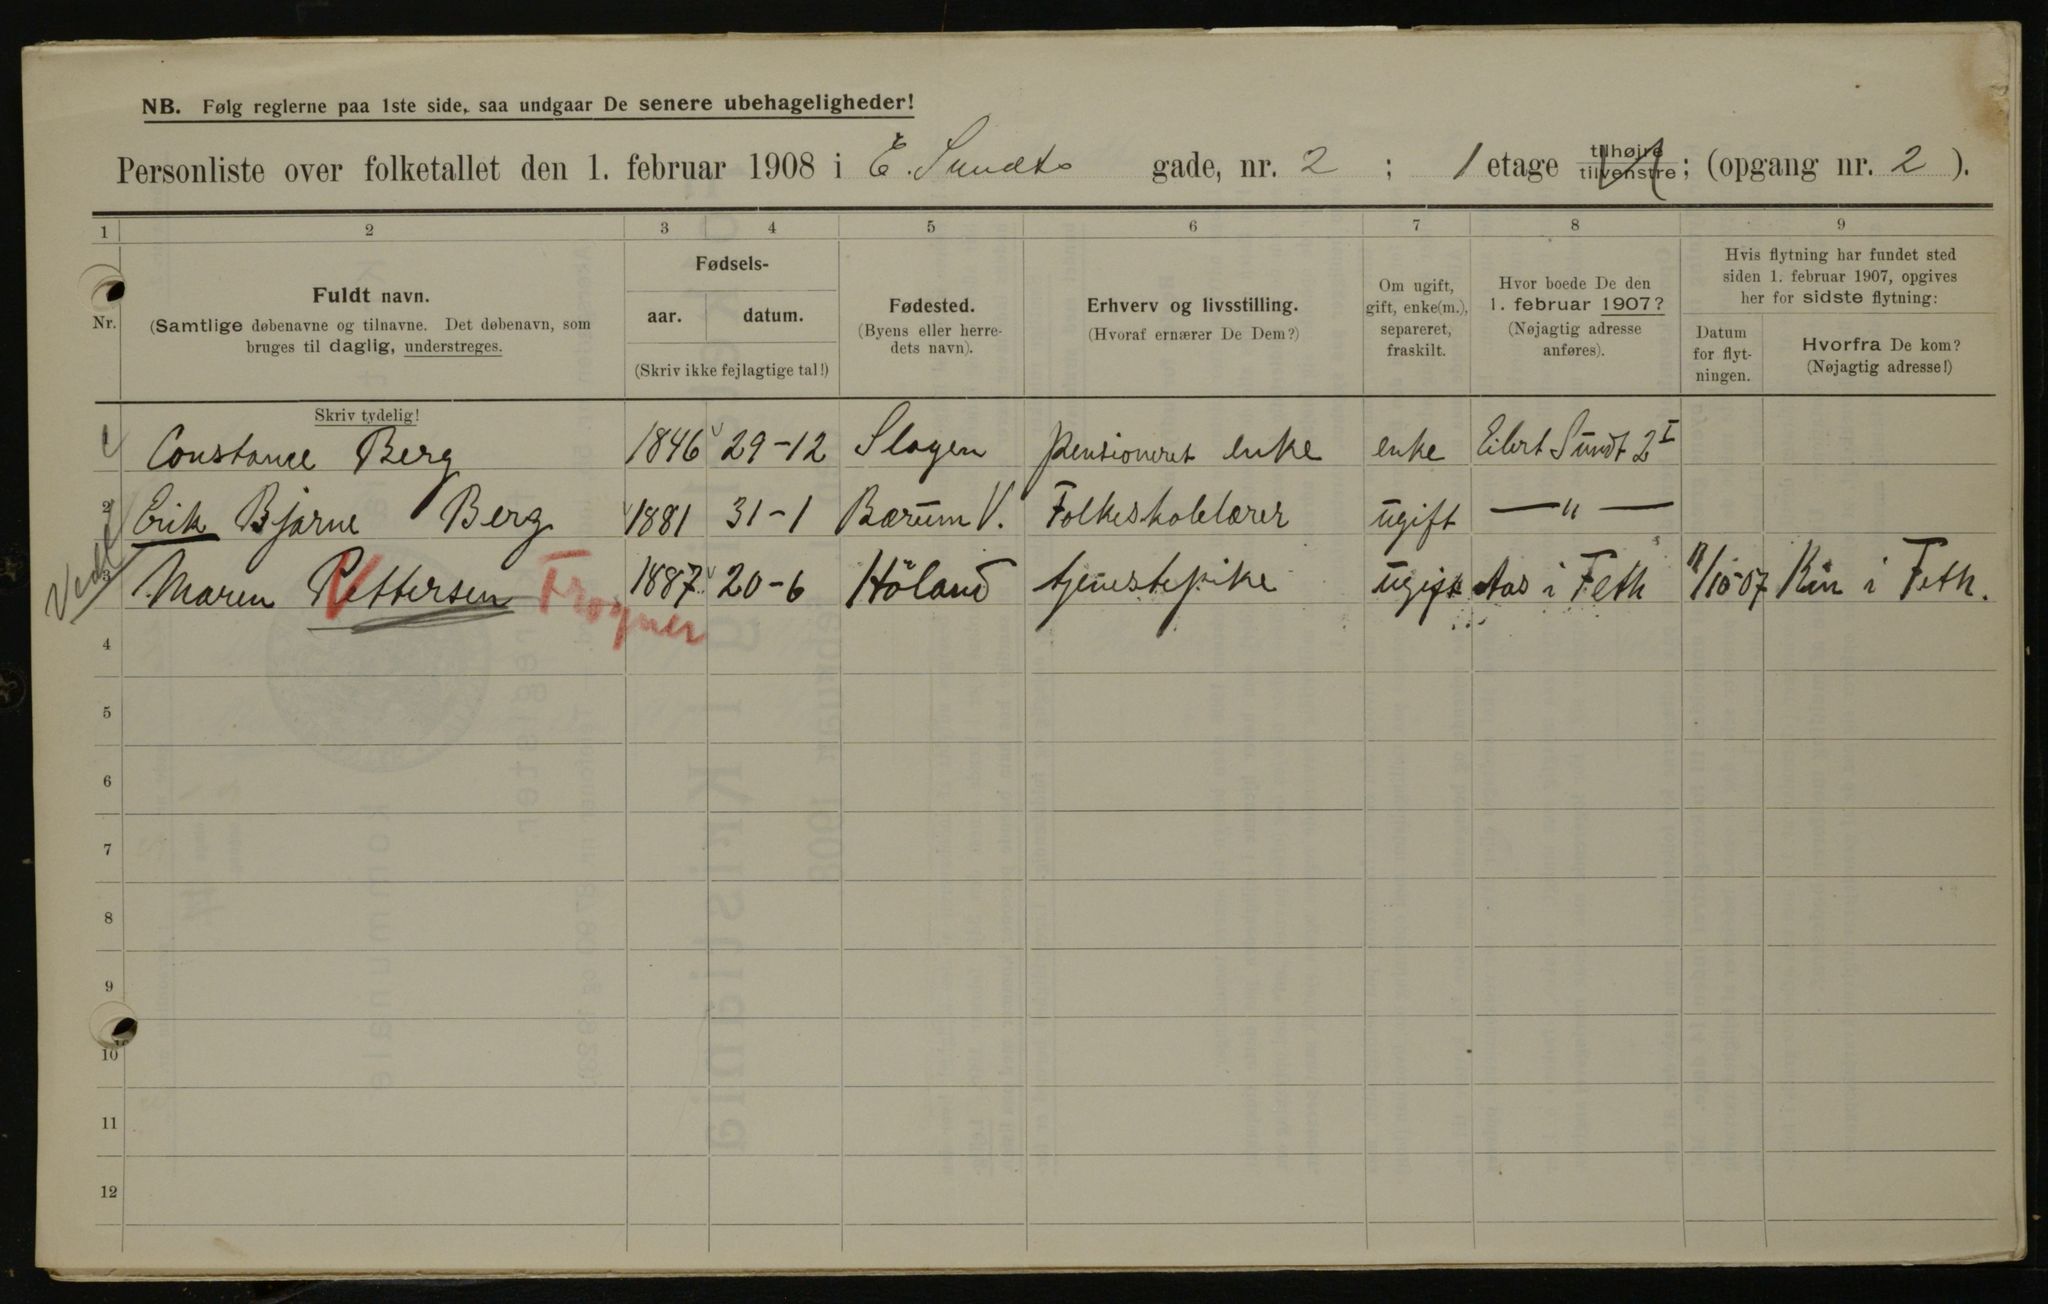 NB. Følg reglerne paa 1ste side, saa undgaar De senere ubehageligheder!
Personliste over folketallet den 1. februar 1908 i E. Sundts gade, nr. 2 ; 1 etage tilhøire tilvenstre ; (opgang nr. 2 ).
1 2 3 4 5 6 7 8 9
Nr.
Fuldt navn.
(Samtlige døbenavne og tilnavne. Det døbenavn, som
bruges til daglig, understreges.
Skriv tydelig!
Fødsels-
aar. datum.
(Skriv ikke fejlagtige tal!)
Fødested.
(Byens eller herre-
dets navn).
Erhverv og livsstilling.
(Hvoraf ernærer De Dem?)
Om ugift,
gift, enke(m.),
separeret,
fraskilt.
Hvor boede De den
1. februar 1907?
(Nøjagtig adresse
anføres).
Hvis flytning har fundet sted
siden 1. februar 1907, opgives
her for sidste flytning:
Datum
for flyt-
ningen.
Hvorfra De kom?
(Nøjagtig adresse!)
1 Constance Berg 1846 29-12 Slagen pensioneret enke enke Eilert Sundt 2 I
2 Erik Bjarne Berg 1881 31-1 Bærum V. Folkeskolelærer ugift — " —
3 Maren Pettersen Frogner 1887 20-6 Höland tjenestepike ugift Aas i Feth /10-07 i Feth.
4
5
6
7
8
9
10
11
12